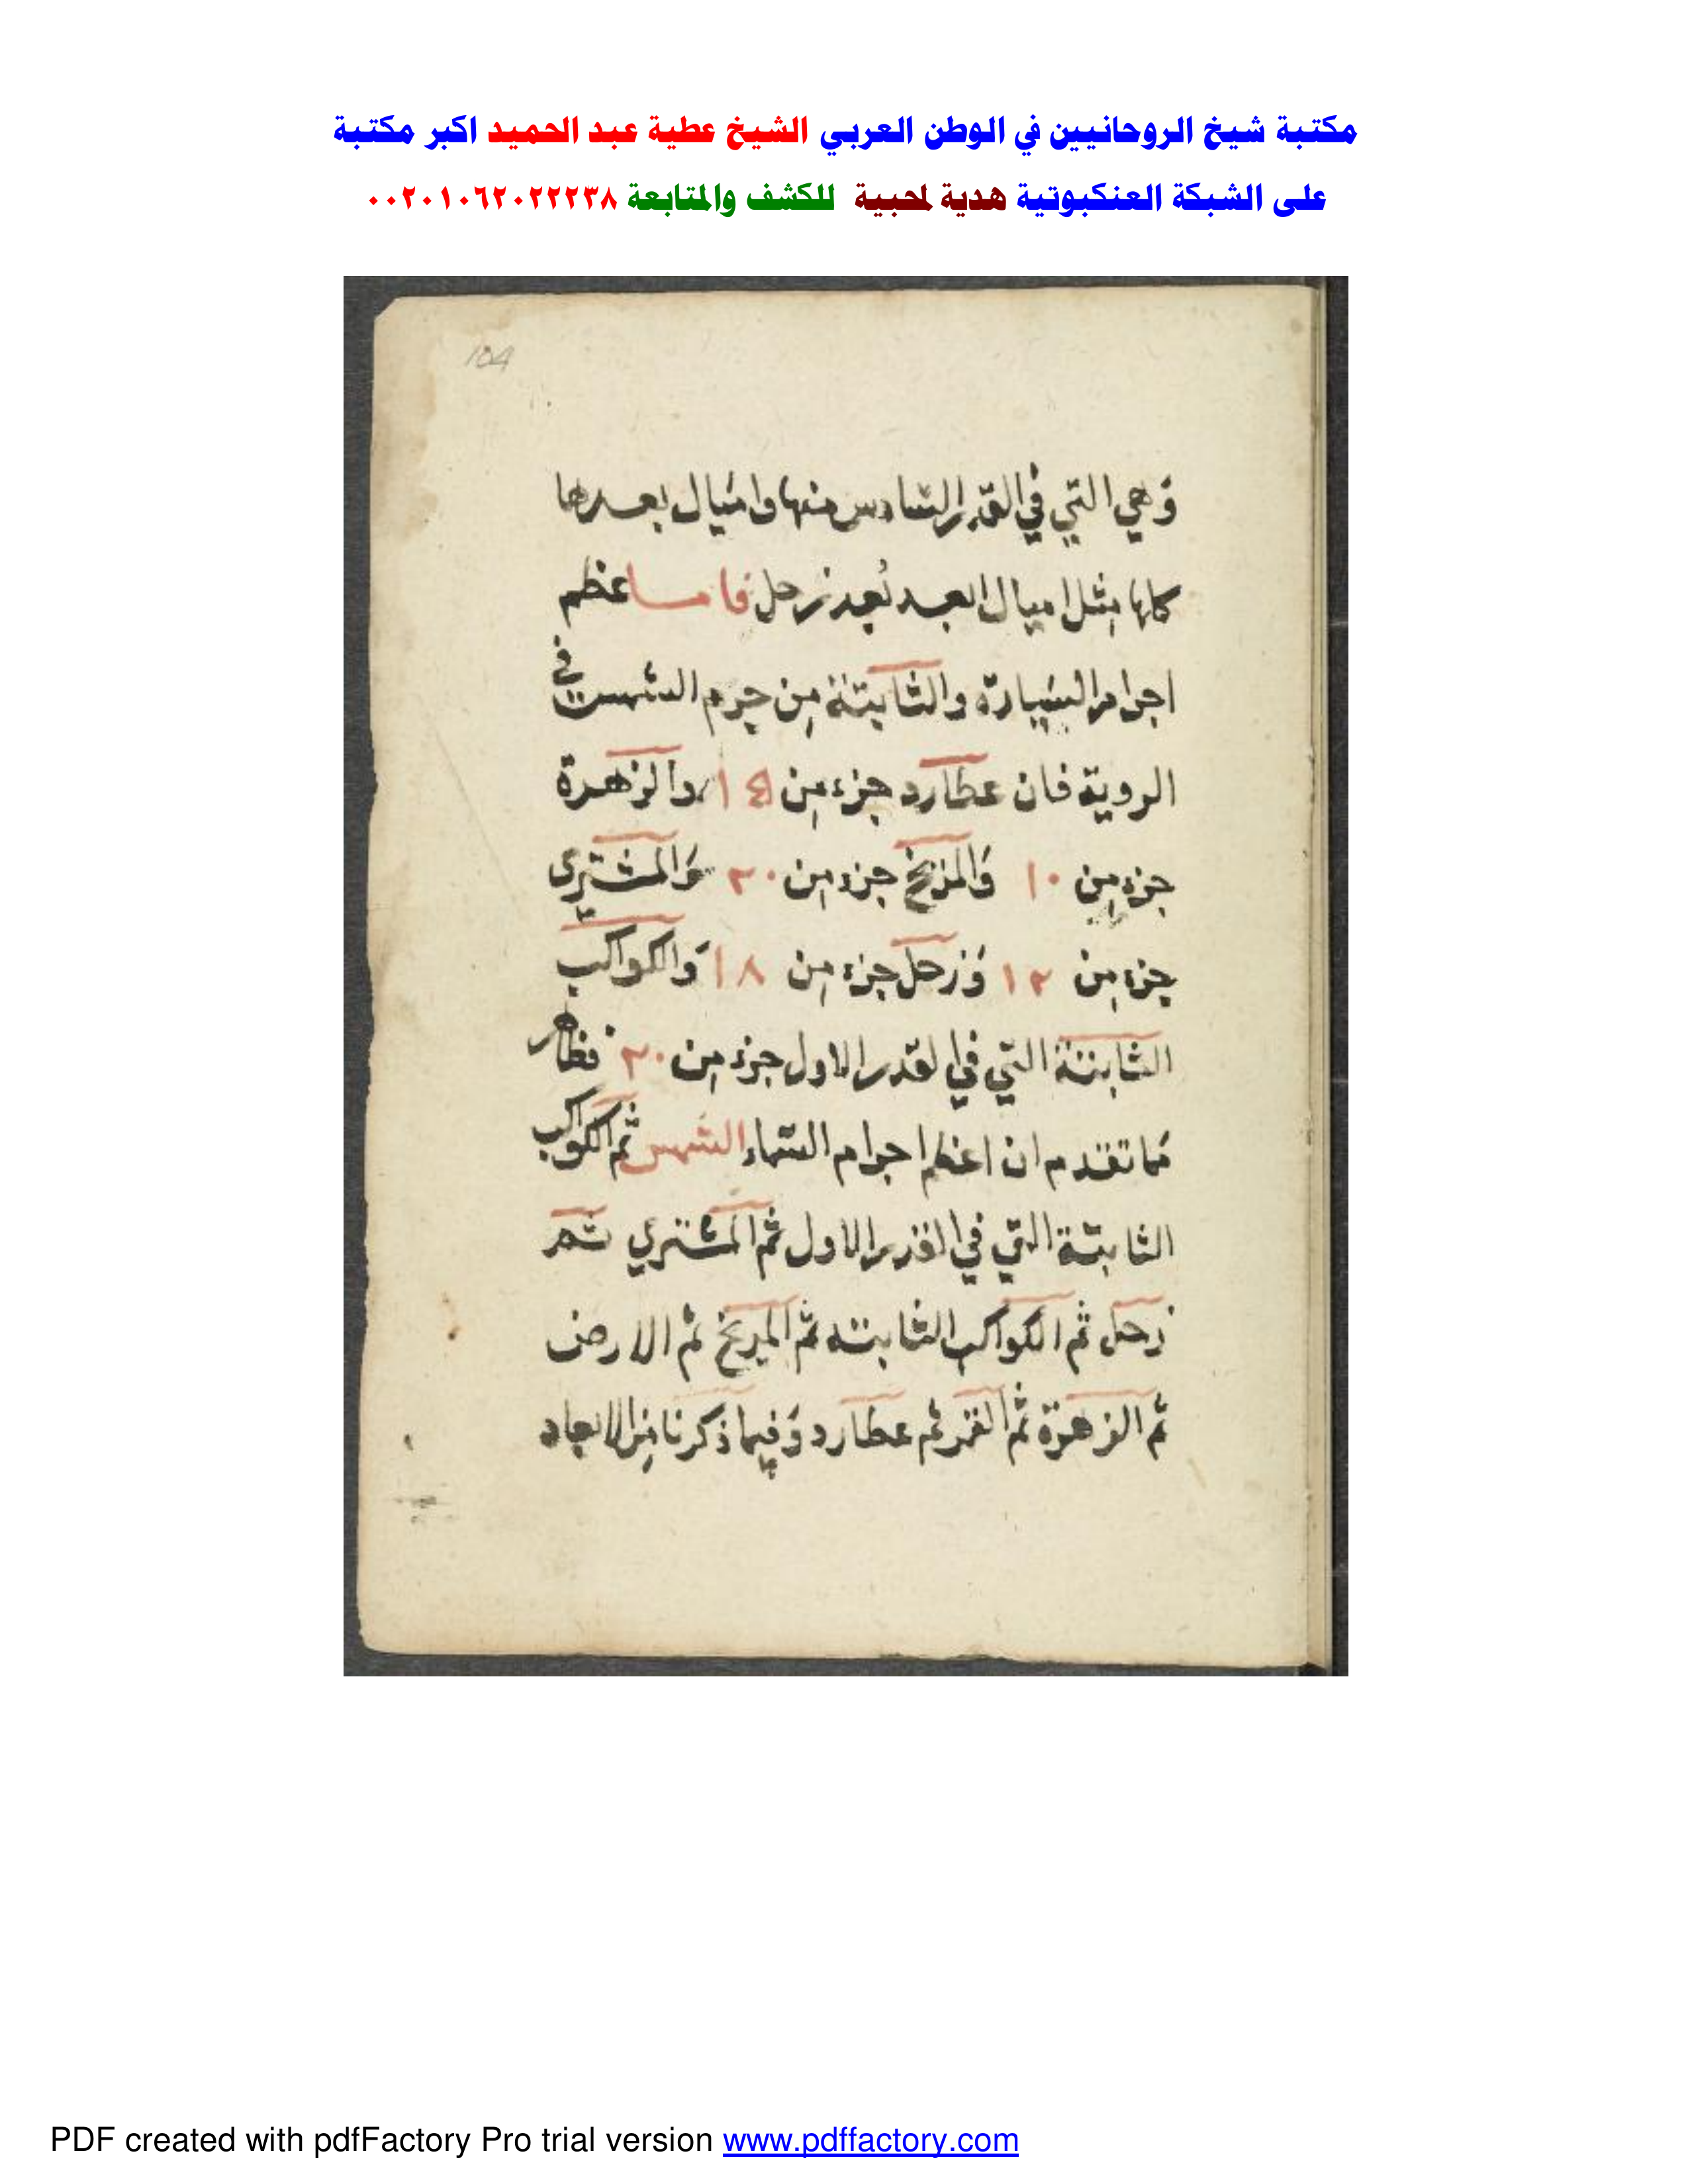 مكتبة شيخ الروحانيين في الوطن العربي الشيخ عطية عبد الحميد اكبر مكتبة
على الشبكة العنكبوتية هدية لمحبية للكشف والمتابعة ٠٠٢٠١٠٦٢٠٢٢٢٣٨
104
وهي التي في القدر السادس منها واميال بعدها
كلها مثل اميال ابعد بعد زحل فاما عظم
اجرام السيارة والثابتة من جرم الشمس في
الروية فان عطارد جزء من ١٤ والزهرة
جزء من ١٠ والمريخ جزء من ٢٠ والمشتري
جزء من ١٢ وزحل جزء من ١٨ والكواكب
الثابتة التي في القدر الاول جزء من ٢٠ فظاهر
مما تقدم ان اعظم اجرام السماء الشمس ثم الكواكب
الثابتة التي في القدر الاول ثم المشتري ثم
زحل ثم الكواكب الثابتة ثم المريخ ثم الارض
ثم الزهرة ثم القمر ثم عطارد وفيما ذكرنا من الابعاد
PDF created with pdfFactory Pro trial version www.pdffactory.com